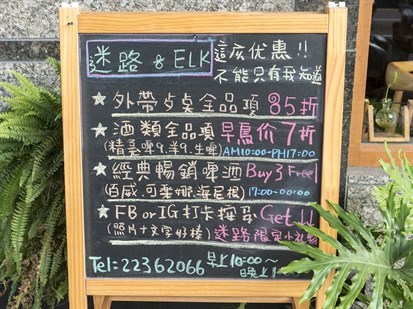 迷路 & ELK
這底优惠!!
不能只有我知道
★ 外帶ㄅ桌全品項 85折
★ 酒類全品項 早鳥价 7折
AM10:00-PM17:00
★ 經典暢銷啤酒 Buy 3 Free 1
(百威、可樂娜、海尼根) 17:00-00:00
★ FB or IG 打卡 Get!!
(照片+文字好棒) 迷路限定小礼物
Tel=22362066 早上10:00~
晚上